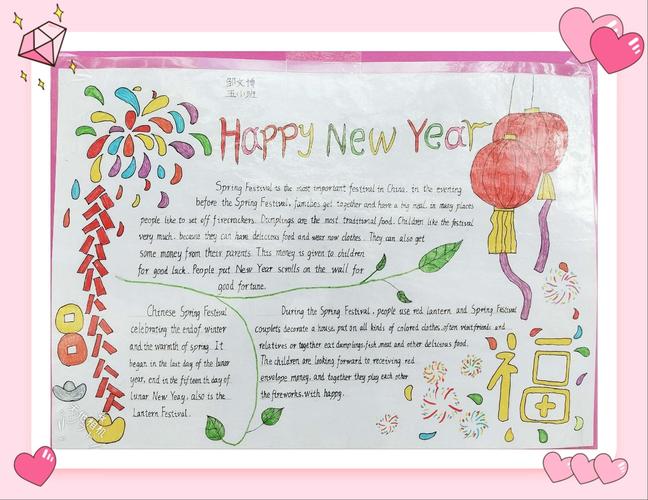 邹文博
五小班
Happy New Year
Spring Festival is the most important festival in China. in the evening
before the Spring Festival, families get together and have a big meal. in many places
people like to set off firecrackers. Dumplings are the most traditional food. Children like the festival
very much, because they can have delicious food and wear new clothes. They can also get
some money from their parents. This money is given to children
for good luck. People put New Year scrolls on the wall for
good fortune.
Chinese Spring Festival
celebrating the end of winter
and the warmth of spring. It
began in the last day of the lunar
year, end in the fifteenth day of
Lunar New Year, also is the
Lantern Festival.
During the Spring Festival, people use red lantern and Spring Festival
couplets decorate a house, put on all kinds of colored clothes, often visit friends and
relatives or together eat dumplings, fish, meat and other delicious food.
The children are looking forward to receiving red
envelope money, and together they play each other
the fireworks, with happy.
福